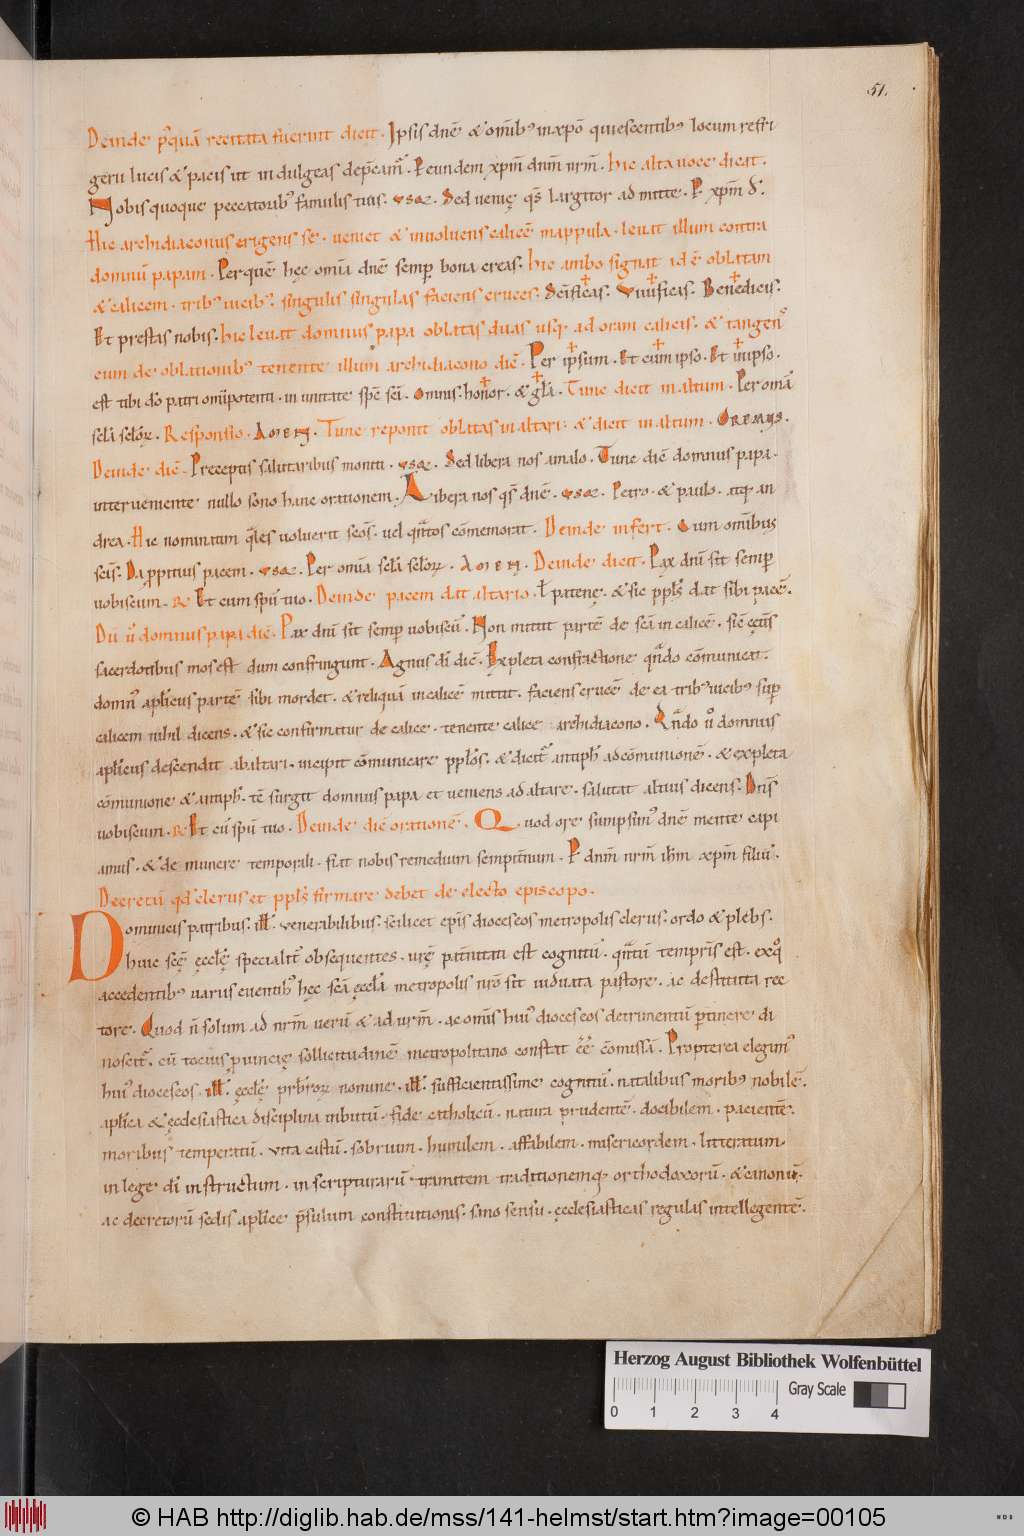 51.
Deinde p̄quā recitata fuerint dicit. Ipsis dnē & omib; in xpō quiescentib; locum refri
gerii lucis & pacis ut indulgeas dep̄cam᷒. P eundem xpm̄ dnm̄ nrm̄. hic alta voce dicat.
Nobis quoque peccatorib; famulis tuis. usq. Sed venię q̄s largitor admitte. P xpm̄ d.
Hic archidiaconus erigens se. veniet & involvens calicē mappula. levat illum contra
domnū papam. Per quē hęc omīa dnē semp bona creas. hic ambo signat id ē oblatam
& calicem. trib; vicib;. singulis singulas faciens cruces. Scīficas. Vivificas. Benedicis.
Et prestas nobis. hic levat domnus papa oblatas duas usq; ad oram calicis. & tangens
eum de oblationib; tenente illum archidiacono dic̄. Per ipsum. Et cum ipso. Et in ipso.
est tibi dō patri omīpotenti. in unitate sp̄s sc̄i. omnis honor. & gl̄a. Tunc dicit in altum. Per omīa
sc̄la sc̄loꝝ. Responsio. AMEN. Tunc reponit oblatas in altari: & dicit in altum. OREMUS.
Deinde dic̄. Preceptis salutaribus moniti. usq. Sed libera nos a malo. Tunc dic̄ domnus papa.
interveniente nullo sono hanc orationem. Libera nos q̄s dnē. usq. Petro. & paulo. atq; an
drea. Hic nominatim q̄les voluerit sc̄os. vel q̄ntos cōmemorat. Deinde infert. Cum omībus
sc̄is. Da ppitius pacem. usq. Per omīa sc̄la sc̄loꝝ. AMEN. Deinde dicit. Pax dnī sit semp
vobiscum. R̄ Et cum spū tuo. Deinde pacem dat altario. ł patenę. & sic ppls̄ dat sibi pacē.
Dū ū domnus papa dic̄. Pax dnī sit semp vobiscū. Non mittit partē de sc̄a in calicē. sic̄ cęt̄is
sacerdotibus mos est dum confringunt. Agnus dī dic̄. Expleta confractione qn̄do cōmunicat.
domn᷒ aplicus partē sibi mordet. & reliquā in calicē mittit. faciens crucē de ea trib; vicib; sup
calicem nihil dicens. & sic confirmatur de calice. tenente calicē archidiacono. Qn̄do ū domnus
aplicus descendit ab altari. incipit cōmunicare pplōs. & dicit᷒ antiph̄ ad cōmunionē. & expleta
cōmunione & antiph̄. tc̄ surgit domnus papa et veniens ad altare. salutat altius dicens. Dns̄
vobiscum. R̄ Et cū spū tuo. Deinde dic̄ orationē. Quod ore sumpsim᷒ dnē mente capi
amus. & de munere temporali. fiat nobis remedium sempit̄num. P dnm̄ nrm̄ ihm̄ xpm̄ filiū.
Decretū qd̄ clerus et ppls̄ firmare debet de electo episcopo.
Dominicis patribus. ill̄. venerabilibus. scilicet epis̄ dioceseos metropolis clerus. ordo & plebs.
huic sc̄ę ęcclę̄ specialit̄ obsequentes. vrę̄ pat̄nitati est cognitū. q̄ntū temporis est. ex quo
accedentib; variis eventib; hęc sc̄a ęccla metropolis nrō sit viduata pastore. ac destituta rec
tore. Quod n̄ solum ad nrm̄ verū & ad vrm̄. ac omīs hui᷒ dioceseos detrimentū p̄tinere di
noscit᷒. cū tocius pvincię sollicitudinē metropolitano constat ēē cōmissā. Propterea elegim᷒
hui᷒ dioceseos. ill̄. ęcclę̄ prb̄roꝝ nomine. ill̄. sufficientissime cognitū. natalibus moribus nobilē.
aplica & ęcclesiastica disciplina inbutū. fide catholicū. natura prudentē. docibilem. pacientē.
moribus temperatū. vita castū. sobrium. humilem. affabilem. misericordem. litteratum.
in lege dī instructum. in scripturarū tramitem traditionemq; orthodoxorū. & canonū.
ac decretorū sedis aplicę p̄sulum constitutionis. sano sensu. ęcclesiasticas regulas intellegentē.
Herzog August Bibliothek Wolfenbüttel
Gray Scale
0 1 2 3 4
© HAB http://diglib.hab.de/mss/141-helmst/start.htm?image=00105